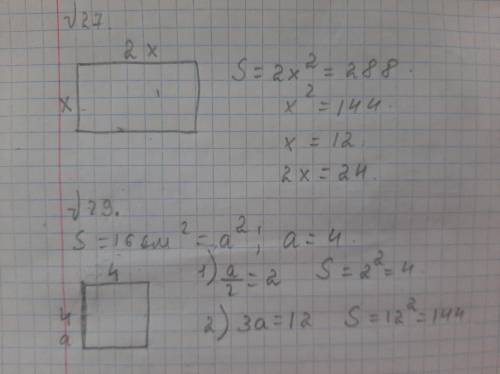 √27.
2x
x
S = 2x² = 288.
x² = 144.
x = 12.
2x = 24.
√29.
S = 16 см² = a²; a = 4.
4
4
a
1) a/2 = 2 S = 2² = 4
2) 3a = 12 S = 12² = 144